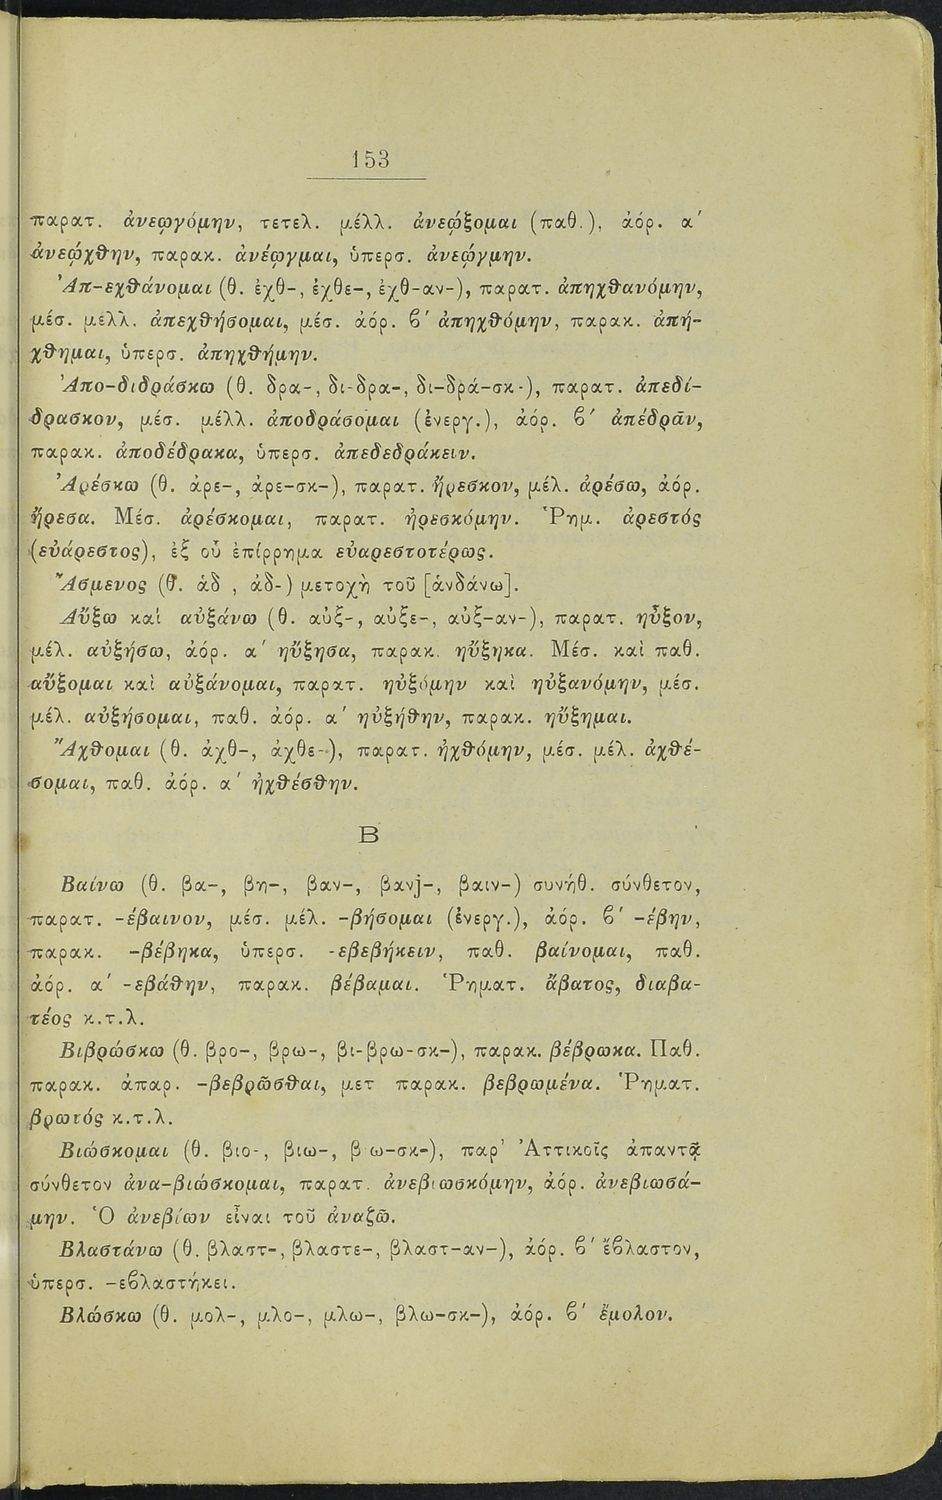 153
παρατ. ἀνεῳγόμην, τετελ. μέλλ. ἀνεῴξομαι (παθ.), ἀόρ. α΄
ἀνεῴχθην, παρακ. ἀνέῳγμαι, ὑπερσ. ἀνεῴγμην.
Ἀπ-εχθάνομαι (θ. ἐχθ-, ἐχθε-, ἐχθ-αν-), παρατ. ἀπηχθανόμην,
μέσ. μέλλ. ἀπεχθήσομαι, μέσ. ἀόρ. β΄ ἀπηχθόμην, παρακ. ἀπή-
χθημαι, ὑπερσ. ἀπηχθήμην.
Ἀπο-διδράσκω (θ. δρα-, δι-δρα-, δι-δρά-σκ-), παρατ. ἀπεδί-
δρασκον, μέσ. μέλλ. ἀποδράσομαι (ἐνεργ.), ἀόρ. β΄ ἀπέδρᾶν,
παρακ. ἀποδέδρακα, ὑπερσ. ἀπεδεδράκειν.
Ἀρέσκω (θ. ἀρε-, ἀρε-σκ-), παρατ. ἤρεσκον, μέλ. ἀρέσω, ἀόρ.
ἤρεσα. Μέσ. ἀρέσκομαι, παρατ. ἠρεσκόμην. Ῥημ. ἀρεστός
(εὐάρεστος), ἐξ οὗ ἐπίρρημα εὐαρεστοτέρως.
Ἄσμενος (θ. ἁδ , ἀδ-) μετοχὴ τοῦ [ἁνδάνω].
Αὔξω καὶ αὐξάνω (θ. αὐξ-, αὐξε-, αὐξ-αν-), παρατ. ηὖξον,
μέλ. αὐξήσω, ἀόρ. α΄ ηὔξησα, παρακ. ηὔξηκα. Μέσ. καὶ παθ.
αὔξομαι καὶ αὐξάνομαι, παρατ. ηὐξόμην καὶ ηὐξανόμην, μέσ.
μέλ. αὐξήσομαι, παθ. ἀόρ. α΄ ηὐξήθην, παρακ. ηὔξημαι.
Ἄχθομαι (θ. ἀχθ-, ἀχθε-), παρατ. ἠχθόμην, μέσ. μέλ. ἀχθέ-
σομαι, παθ. ἀόρ. α΄ ἠχθέσθην.
Β
Βαίνω (θ. βα-, βη-, βαν-, βανj-, βαιν-) συνήθ. σύνθετον,
παρατ. -έβαινον, μέσ. μέλ. -βήσομαι (ἐνεργ.), ἀόρ. β΄ -έβην,
παρακ. -βέβηκα, ὑπερσ. -εβεβήκειν, παθ. βαίνομαι, παθ.
ἀόρ. α΄ -εβάθην, παρακ. βέβαμαι. Ῥηματ. ἄβατος, διαβα-
τέος κ.τ.λ.
Βιβρώσκω (θ. βρο-, βρω-, βι-βρω-σκ-), παρακ. βέβρωκα. Παθ.
παρακ. ἀπαρ. -βεβρῶσθαι, μετ παρακ. βεβρωμένα. Ῥηματ.
βρωτός κ.τ.λ.
Βιώσκομαι (θ. βιο-, βιω-, β ω-σκ-), παρ' Ἀττικοῖς ἀπαντᾷ
σύνθετον ἀνα-βιώσκομαι, παρατ. ἀνεβιωσκόμην, ἀόρ. ἀνεβιωσά-
μην. Ὁ ἀνεβίων εἶναι τοῦ ἀναζῶ.
Βλαστάνω (θ. βλαστ-, βλαστε-, βλαστ-αν-), ἀόρ. β΄ ἔβλαστον,
ὑπερσ. -εβλαστήκει.
Βλώσκω (θ. μολ-, μλο-, μλω-, βλω-σκ-), ἀόρ. β΄ ἔμολον.